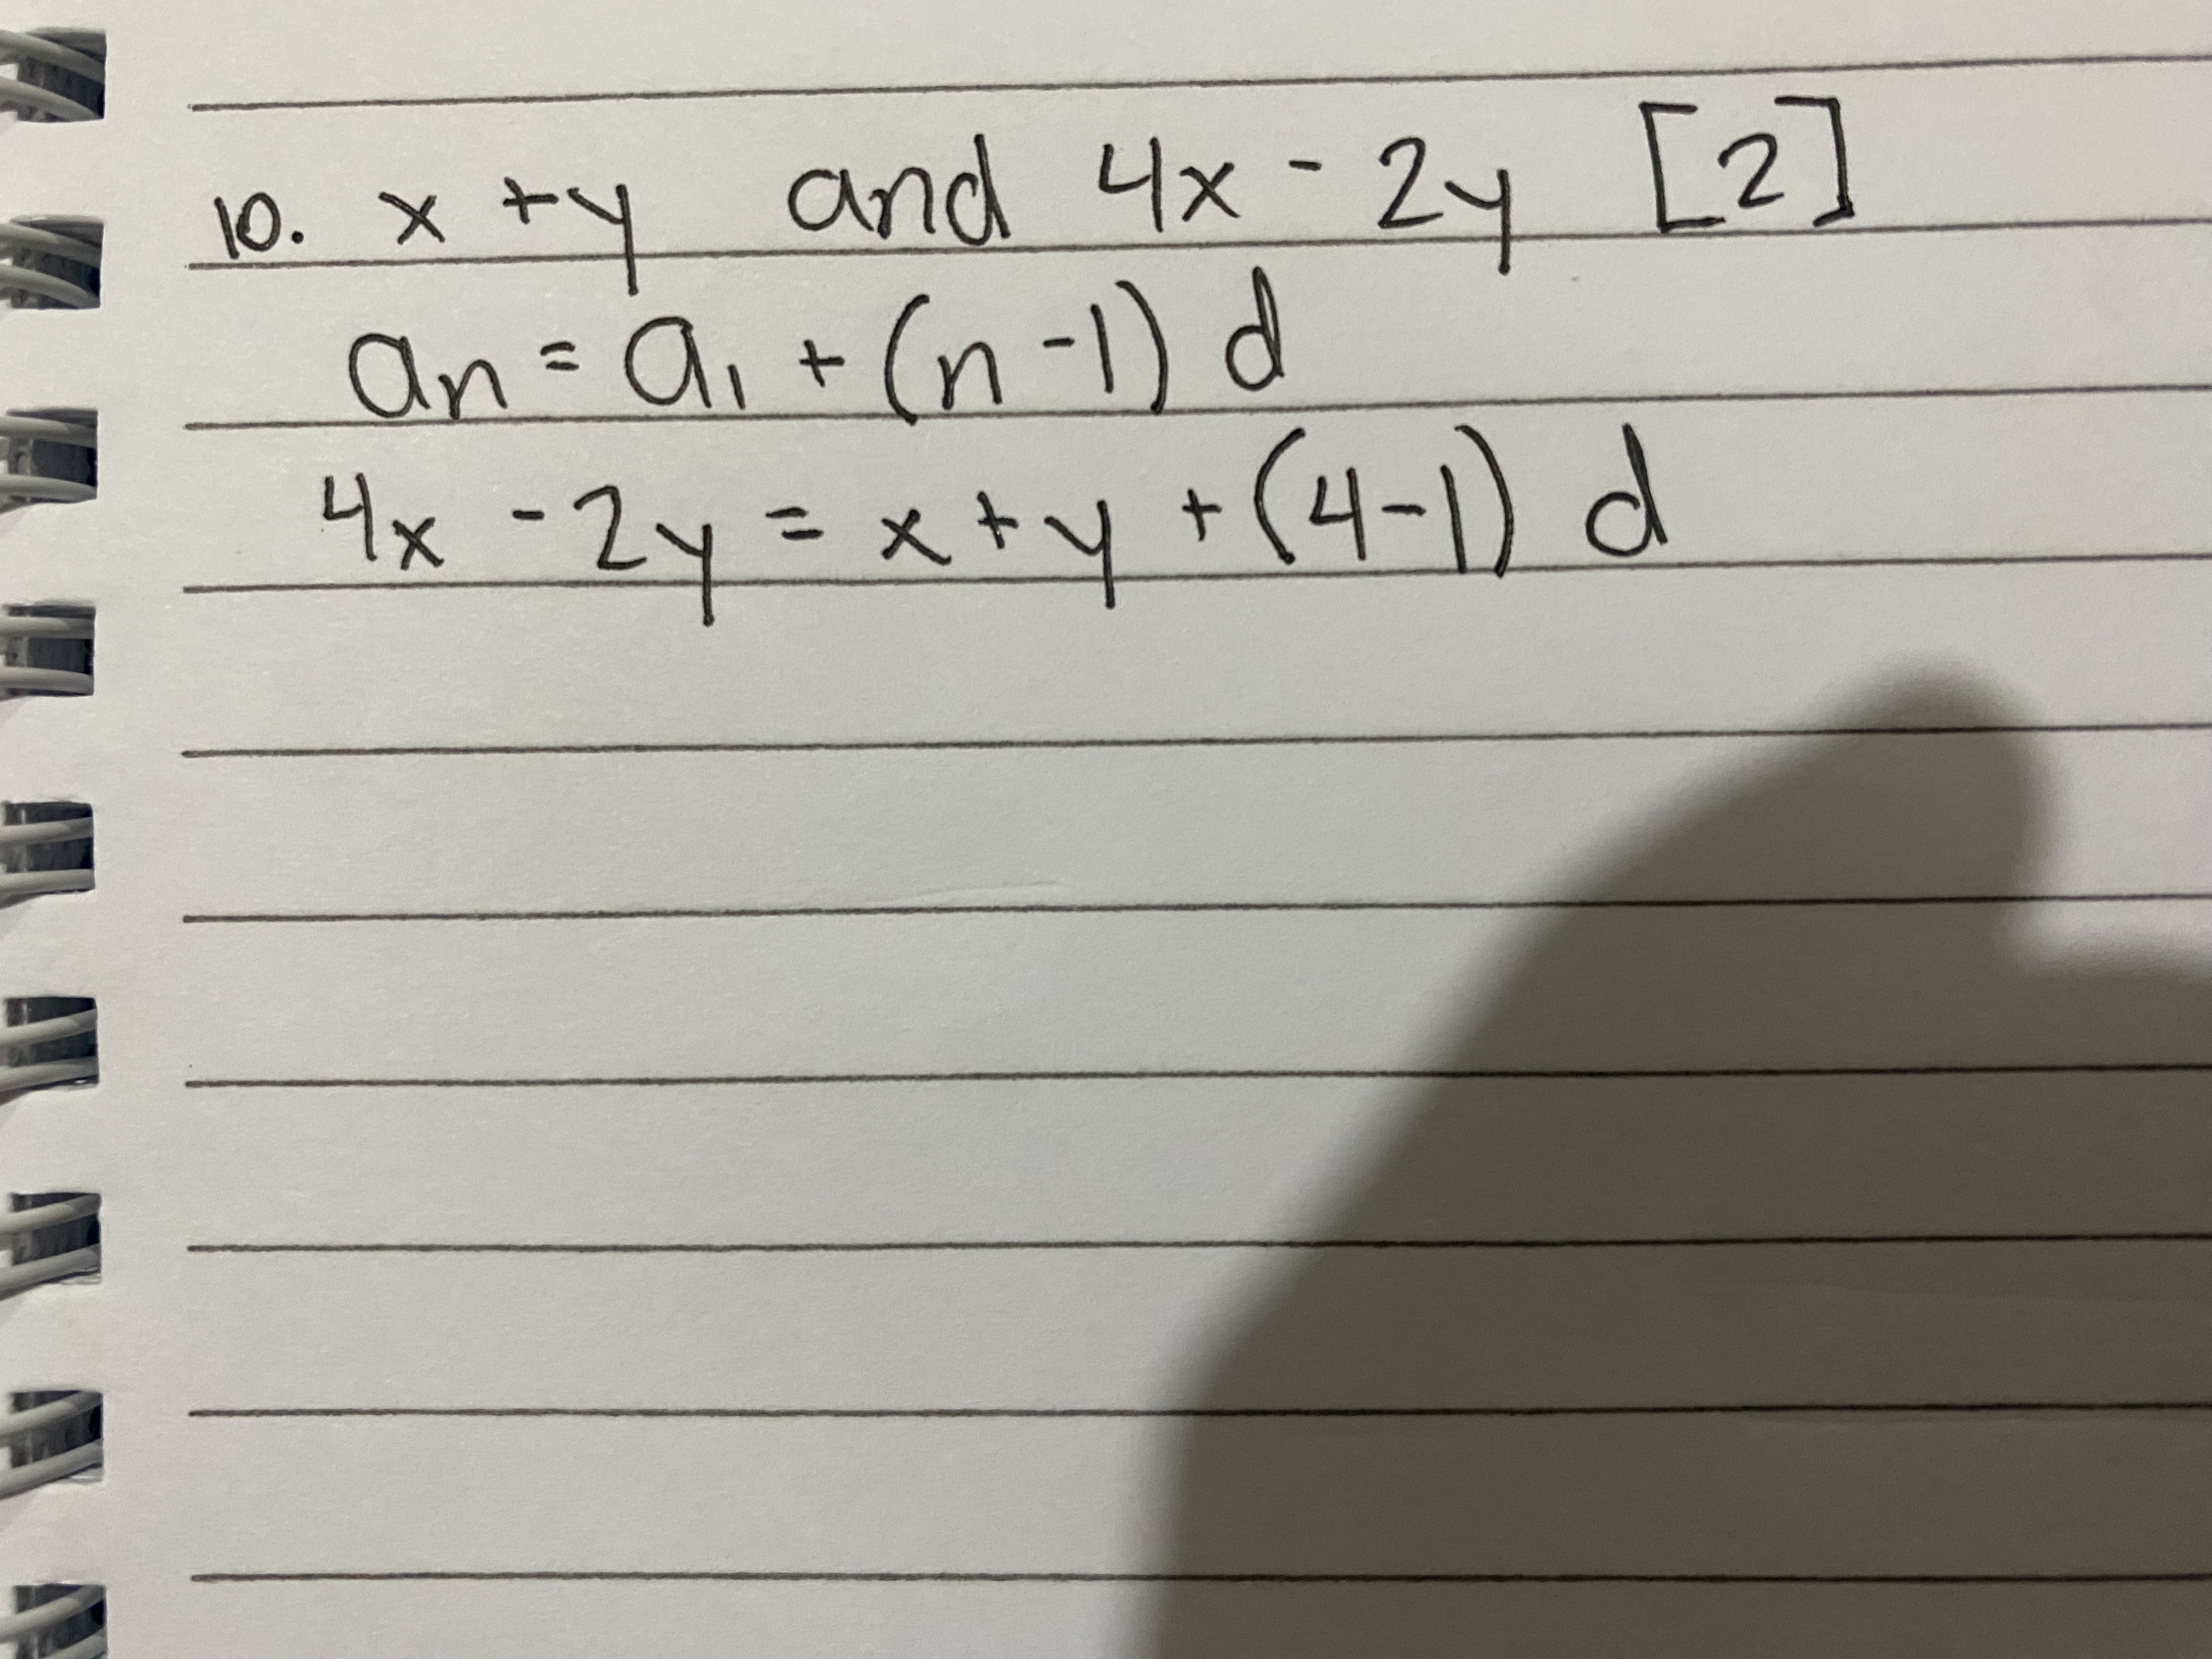 10. x + y and 4x - 2y [2]
an = a₁ + (n - 1) d
4x - 2y = x + y + (4 - 1) d